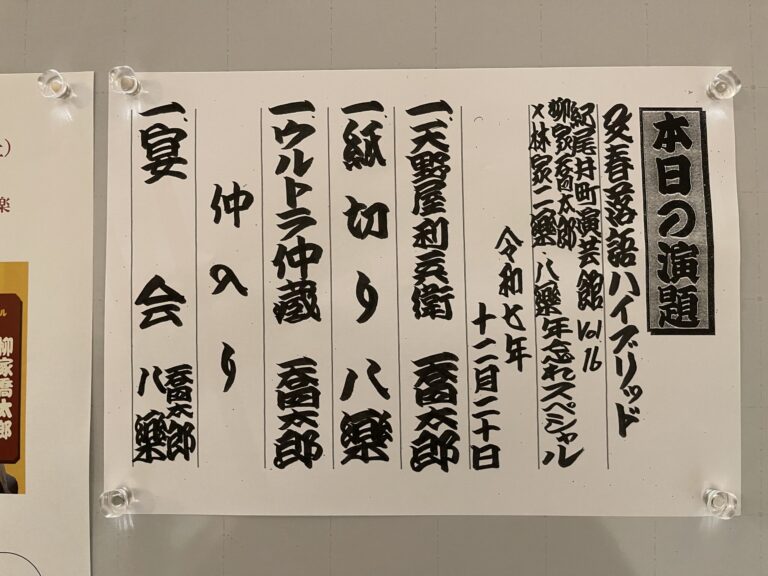 本日の演題
文春落語ハイブリッド
紀尾井町演芸館 Vol 16
柳家喬太郎
×林家二樂・八樂年忘れスペシャル
令和七年
十二月二十日
一、天野屋利兵衛 喬太郎
一、紙切り 八樂
一、ウルトラ仲蔵 喬太郎
仲入り
一、宴会 喬太郎
八樂
楽
ル
柳家喬太郎